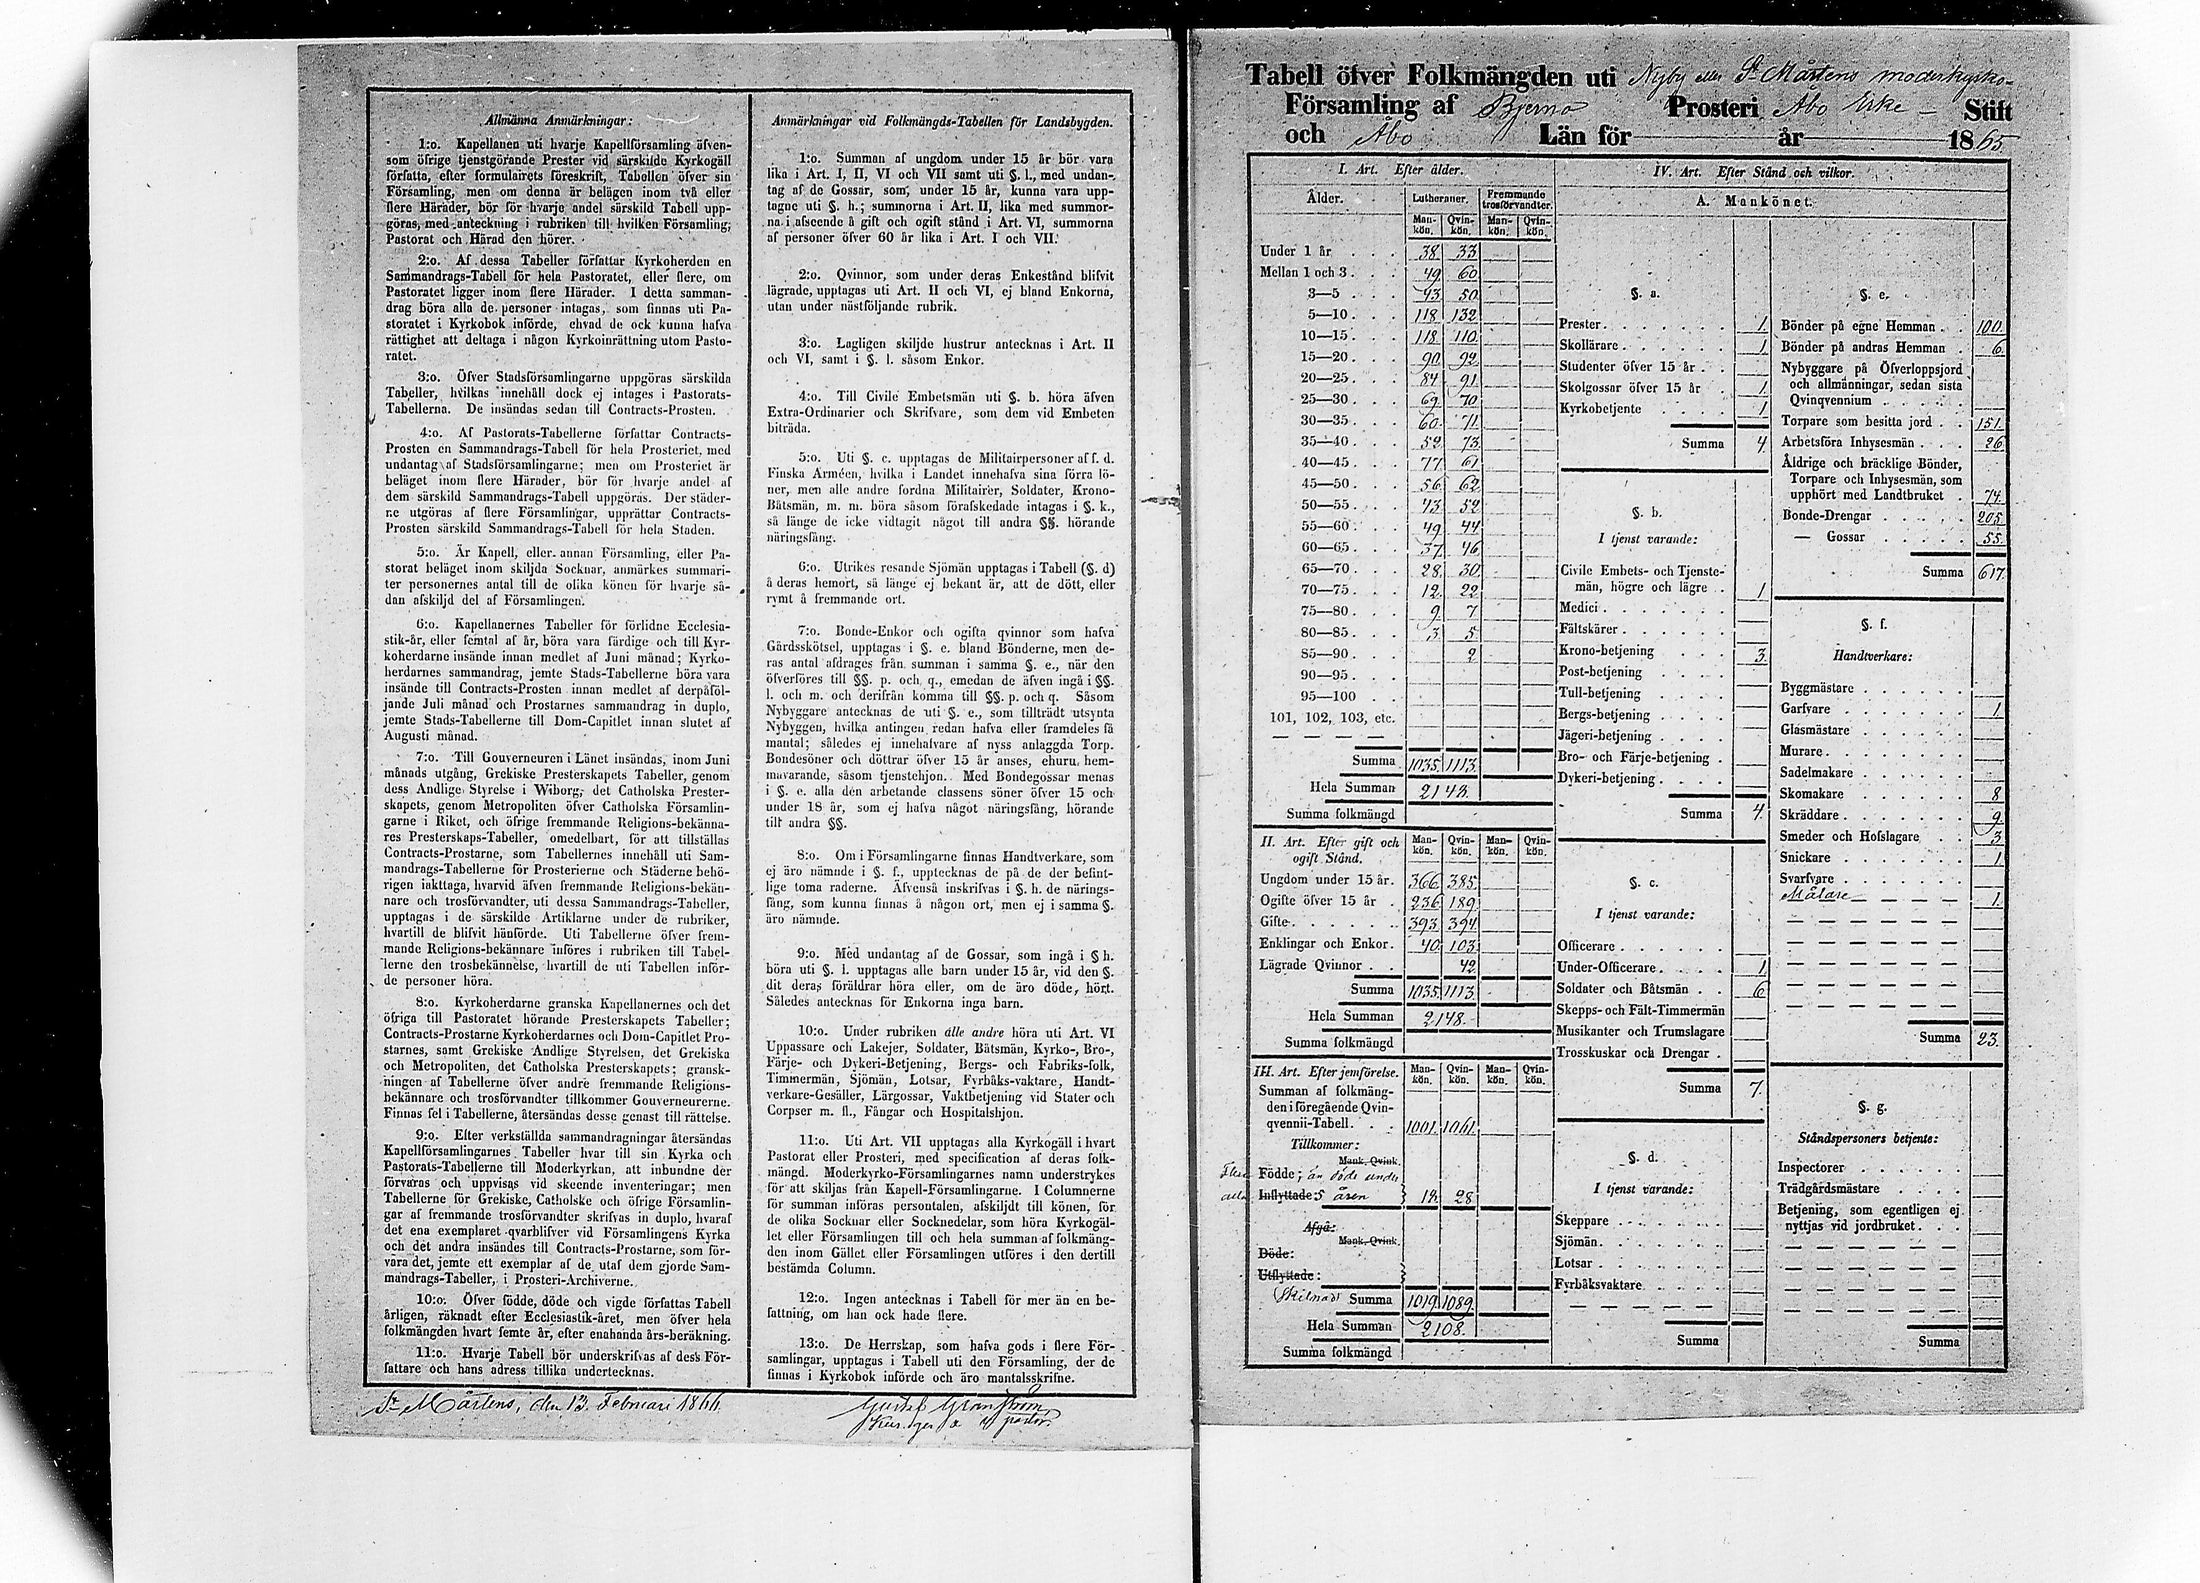 Allmänna Anmärkningar:
1:o. Kapellanen uti hvarje Kapellförsamling äfven-
som öfrige tjenstgörande Prester vid särskilde Kyrkogäll
författa, efter formulairets föreskrift, Tabellen öfver sin
Församling, men om denna är belägen inom två eller
flere Härader, bör för hvarje andel särskild Tabell upp-
göras, med anteckning i rubriken till hvilken Församling,
Pastorat och Härad den hörer.
2:o. Af dessa Tabeller författar Kyrkoherden en
Sammandrags-Tabell för hela Pastoratet, eller flere, om
Pastoratet ligger inom flere Härader. I detta samman-
drag böra alla de personer intagas, som finnas uti Pa-
storatet i Kyrkobok införde, ehvad de ock kunna hafva
rättighet att deltaga i någon Kyrkoinrättning utom Pasto-
ratet.
3:o. Öfver Stadsförsamlingarne uppgöras särskilda
Tabeller, hvilkas innehåll dock ej intages i Pastorats-
Tabellerna. De insändas sedan till Contracts-Prosten.
4:o. Af Pastorats-Tabellerne författar Contracts-
Prosten en Sammandrags-Tabell för hela Prosteriet, med
undantag af Stadsförsamlingarne; men om Prosteriet är
beläget inom flere Härader, bör för hvarje andel af
dem särskild Sammandrags-Tabell uppgöras. Der städer-
ne utgöras af flere Församlingar, upprättar Contracts-
Prosten särskild Sammandrags-Tabell för hela Staden.
5:o. Är Kapell, eller annan Församling, eller Pa-
storat beläget inom skiljda Socknar, anmärkes summari-
ter personernes antal till de olika könen för hvarje så-
dan afskiljd del af Församlingen.
6:o. Kapellanernes Tabeller för förlidne Ecclesia-
stik-år, eller femtal af år, böra vara färdige och till Kyr-
koherdarne insände innan medlet af Juni månad; Kyrko-
herdarnes sammandrag, jemte Stads-Tabellerne böra vara
insände till Contracts-Prosten innan medlet af derpåföl-
jande Juli månad och Prostarnes sammandrag in duplo,
jemte Stads-Tabellerne till Dom-Capitlet innan slutet af
Augusti månad.
7:o. Till Gouverneuren i Länet insändas, inom Juni
månads utgång, Grekiske Presterskapets Tabeller, genom
dess Andlige Styrelse i Wiborg, det Catholska Prester-
skapets, genom Metropoliten öfver Catholska Församlin-
garne i Riket, och öfrige fremmande Religions-bekänna-
res Presterskaps-Tabeller, omedelbart, för att tillställas
Contracts-Prostarne, som Tabellernes innehåll uti Sam-
mandrags-Tabellerne för Prosterierne och Städerne behö-
rigen iakttaga, hvarvid äfven fremmande Religions-bekän-
nare och trosförvandter, uti dessa Sammandrags-Tabeller,
upptagas i de särskilde Artiklarne under de rubriker,
hvartill de blifvit hänförde. Uti Tabellerne öfver frem-
mande Religions-bekännare införes i rubriken till Tabel-
lerne den trosbekännelse, hvartill de uti Tabellen inför-
de personer höra.
8:o. Kyrkoherdarne granska Kapellanernes och det
öfriga till Pastoratet hörande Presterskapets Tabeller;
Contracts-Prostarne Kyrkoherdarnes och Dom-Capitlet Pro-
starnes, samt Grekiske Andlige Styrelsen, det Grekiska
och Metropoliten, det Catholska Presterskapets; gransk-
ningen af Tabellerne öfver andre fremmande Religions-
bekännare och trosförvandter tillkommer Gouverneurerne.
Finnas fel i Tabellerne, återsändas desse genast till rättelse.
9:o. Efter verkställda sammandragningar återsändas
Kapellförsamlingarnes Tabeller hvar till sin Kyrka och
Pastorats-Tabellerne till Moderkyrkan, att inbundne der
förvaras och uppvisas vid skeende inventeringar; men
Tabellerne för Grekiske, Catholske och öfrige Församlin-
gar af fremmande trosförvandter skrifvas in duplo, hvaraf
det ena exemplaret qvarblifver vid Församlingens Kyrka
och det andra insändes till Contracts-Prostarne, som för-
vara det, jemte ett exemplar af de utaf dem gjorde Sam-
mandrags-Tabeller, i Prosteri-Archiverne.
10:o. Öfver födde, döde och vigde författas Tabell
årligen, räknadt efter Ecclesiastik-året, men öfver hela
folkmängden hvart femte år, efter enahanda års-beräkning.
11:o. Hvarje Tabell bör underskrifvas af dess För-
fattare och hans adress tillika undertecknas.
St Mårtens, den 13 Februari 1866.
Anmärkningar vid Folkmängds-Tabellen för Landsbygden.
1:o. Summan af ungdom under 15 år bör vara
lika i Art. I, II, VI och VII samt uti §. l., med undan-
tag af de Gossar, som, under 15 år, kunna vara upp-
tagne uti §. h.; summorna i Art. II, lika med summor-
na i afseende å gift och ogift stånd i Art. VI, summorna
af personer öfver 60 år lika i Art. I och VII.
2:o. Qvinnor, som under deras Enkestånd blifvit
lägrade, upptagas uti Art. II och VI, ej bland Enkorna,
utan under nästföljande rubrik.
3:o. Lagligen skiljde hustrur antecknas i Art. II
och VI, samt i §. l. såsom Enkor.
4:o. Till Civile Embetsmän uti §. b. höra äfven
Extra-Ordinarier och Skrifvare, som dem vid Embeten
biträda.
5:o. Uti §. c. upptagas de Militairpersoner af f. d.
Finska Arméen, hvilka i Landet innehafva sina förra lö-
ner, men alle andre fordna Militairer, Soldater, Krono-
Båtsmän, m. m. böra såsom förafskedade intagas i §. k.,
så länge de icke vidtagit något till andra §§. hörande
näringsfång.
6:o. Utrikes resande Sjömän upptagas i Tabell (§. d)
å deras hemort, så länge ej bekant är, att de dött, eller
rymt å fremmande ort.
7:o. Bonde-Enkor och ogifta qvinnor som hafva
Gårdsskötsel, upptagas i §. e. bland Bönderne, men de-
ras antal afdrages från summan i samma §. e., när den
öfverföres till §§. p. och q., emedan de äfven ingå i §§.
l. och m. och derifrån komma till §§. p. och q. Såsom
Nybyggare antecknas de uti §. e., som tillträdt utsynta
Nybyggen, hvilka antingen redan hafva eller framdeles få
mantal; således ej innehafvare af nyss anlaggda Torp.
Bondesöner och döttrar öfver 15 år anses, ehuru hem-
mavarande, såsom tjenstehjon. Med Bondegossar menas
i §. e. alla den arbetande classens söner öfver 15 och
under 18 år, som ej hafva något näringsfång, hörande
till andra §§.
8:o. Om i Församlingarne finnas Handtverkare, som
ej äro nämnde i §. f., upptecknas de på de der befint-
lige toma raderne. Äfvenså inskrifvas i §. h. de närings-
fång, som kunna finnas å någon ort, men ej i samma §.
äro nämnde.
9:o. Med undantag af de Gossar, som ingå i § h.
böra uti §. l. upptagas alle barn under 15 år, vid den §.
dit deras föräldrar höra eller, om de äro döde, hört.
Således antecknas för Enkorna inga barn.
10:o. Under rubriken alle andre höra uti Art. VI
Uppassare och Lakejer, Soldater, Båtsmän, Kyrko-, Bro-,
Färje- och Dykeri-Betjening, Bergs- och Fabriks-folk,
Timmermän, Sjömän, Lotsar, Fyrbåks-vaktare, Handt-
verkare-Gesäller, Lärgossar, Vaktbetjening vid Stater och
Corpser m. fl., Fångar och Hospitalshjon.
11:o. Uti Art. VII upptagas alla Kyrkogäll i hvart
Pastorat eller Prosteri, med specification af deras folk-
mängd. Moderkyrko-Församlingarnes namn understrykes
för att skiljas från Kapell-Församlingarne. I Columnerne
för summan införas persontalen, afskiljdt till könen, för
de olika Socknar eller Socknedelar, som höra Kyrkogäl-
let eller Församlingen till och hela summan af folkmäng-
den inom Gället eller Församlingen utföres i den dertill
bestämda Column.
12:o. Ingen antecknas i Tabell för mer än en be-
fattning, om han ock hade flere.
13:o. De Herrskap, som hafva gods i flere För-
samlingar, upptagas i Tabell uti den Församling, der de
finnas i Kyrkobok införde och äro mantalsskrifne.
Gustaf Granström
pastor
Tabell öfver Folkmängden uti Nyby eller St Mårtens moderkyrko-
Församling af Bjerno Prosteri Åbo Erke- Stift
och Åbo Län för år 1865
I. Art. Efter ålder.
Ålder. Lutheraner. Fremmande trosförvandter.
Man-kön. Qvin-kön. Man-kön. Qvin-kön.
Under 1 år 38 33
Mellan 1 och 3 49 60
3—5 43 50
5—10 118 132
10—15 118 110
15—20 90 92
20—25 84 91
25—30 69 70
30—35 60 71
35—40 52 73
40—45 77 61
45—50 56 62
50—55 43 52
55—60 49 44
60—65 37 46
65—70 28 30
70—75 12 22
75—80 9 7
80—85 3 5
85—90 2
90—95
95—100
101, 102, 103, etc.
Summa 1035 1113
Hela Summan 2148.
Summa folkmängd
II. Art. Efter gift och ogift Stånd.
Man-kön. Qvin-kön. Man-kön. Qvin-kön.
Ungdom under 15 år. 366 385
Ogifte öfver 15 år 236 189
Gifte 393 394
Enklingar och Enkor. 40 103
Lägrade Qvinnor 42
Summa 1035 1113
Hela Summan 2148.
Summa folkmängd
III. Art. Efter jemförelse.
Man-kön. Qvin-kön. Man-kön. Qvin-kön.
Summan af folkmäng-
den i föregående Qvin-
qvennii-Tabell. 1001 1061
Tillkommer:
Mank. Qvink.
Flere Födde; än döde under
Inflyttade: 5 åren 18 28
Afgå:
Mank. Qvink.
Döde:
Utflyttade:
Skilnad Summa 1019 1089
Hela Summan 2108.
Summa folkmängd
IV. Art. Efter Stånd och vilkor.
A. Mankönet.
§. a.
Prester 1
Skollärare 1
Studenter öfver 15 år
Skolgossar öfver 15 år 1
Kyrkobetjente 1
Summa 4
§. b.
I tjenst varande:
Civile Embets- och Tjenste-
män, högre och lägre 1
Medici
Fältskärer
Krono-betjening 3
Post-betjening
Tull-betjening
Bergs-betjening
Jägeri-betjening
Bro- och Färje-betjening
Dykeri-betjening
Summa 4
§. c.
I tjenst varande:
Officerare
Under-Officerare 1
Soldater och Båtsmän 6
Skepps- och Fält-Timmermän
Musikanter och Trumslagare
Trosskuskar och Drengar
Summa 7.
§. d.
I tjenst varande:
Skeppare
Sjömän
Lotsar
Fyrbåksvaktare
Summa
§. e.
Bönder på egne Hemman 100
Bönder på andras Hemman 6
Nybyggare på Öfverloppsjord
och allmänningar, sedan sista
Qvinqvennium
Torpare som besitta jord 151
Arbetsföra Inhysesmän 26
Åldrige och bräcklige Bönder,
Torpare och Inhysesmän, som
upphört med Landtbruket 74
Bonde-Drengar 205
— Gossar 55
Summa 617
§. f.
Handtverkare:
Byggmästare
Garfvare 1
Glasmästare
Murare
Sadelmakare
Skomakare 8
Skräddare 9
Smeder och Hofslagare 3
Snickare 1
Svarfvare
Målare 1
Summa 23
§. g.
Ståndspersoners betjente:
Inspectorer
Trädgårdsmästare
Betjening, som egentligen ej
nyttjas vid jordbruket
Summa